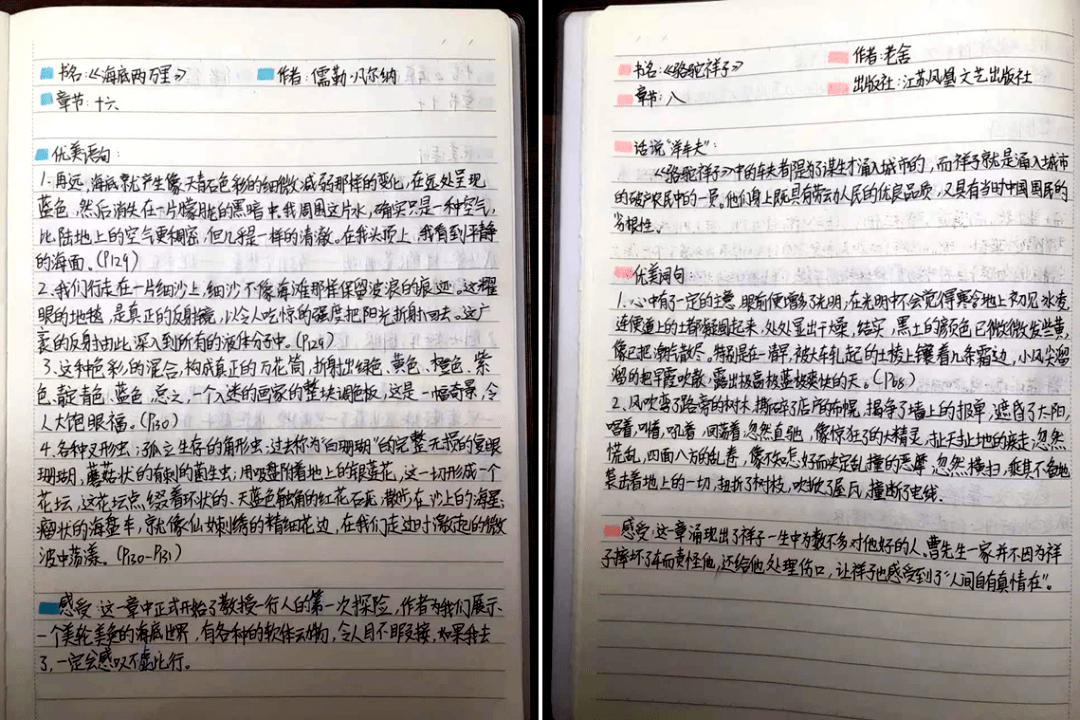 书名:《海底两万里》 作者:儒勒·凡尔纳
章节:十六
优美语句:
1.再远,海底就产生像天青石色彩的细微减弱那样的变化,在远处呈现
蓝色,然后消失在一片朦胧的黑暗中。我周围这片水,确实只是一种空气,
比陆地上的空气更稠密,但几乎是一样的清澈。在我头顶上,我看到平静
的海面。(P129)
2.我们行走在一片细沙上,细沙不像海滩那样保留波浪的痕迹。这耀
眼的地毯,是真正的反射镜,以令人吃惊的强度把阳光折射回去。这广
袤的反射由此深入到所有的液体分子中。(P129)
3.这种色彩的混合,构成真正的万花筒,折射出绿色、黄色、橙色、紫
色、靛青色、蓝色,总之,一个入迷的画家的整块调色板,这是一幅奇景,令
人大饱眼福。(P130)
4.各种叉形虫;孤立生存的角形虫;过去称为"白珊瑚"的完整无损的复眼
珊瑚,蘑菇状的有刺的菌生虫;用吸盘附着地上的银莲花,这一切形成一个
花坛,这花坛点缀着环状的、天蓝色触角的红花石疣,散步在沙上的海星;
瘤状的海盘车,就像仙女刺绣的精细花边,在我们走过时激起的微
波中荡漾。(P130-P131)
感受:这一章中正式开始了教授一行人的第一次探险,作者为我们展示
一个美轮美奂的海底世界,有各种的软体动物,令人目不暇接,如果我去
了,一定会感叹不虚此行。
书名:《骆驼祥子》 作者:老舍
章节:八 出版社:江苏凤凰文艺出版社
话说"洋车夫":
《骆驼祥子》中的车夫都是为了谋生才涌入城市的,而祥子就是涌入城市
的破产农民中的一员。他们身上既具有劳动人民的优良品质,又具有当时中国国民的
劣根性。
优美词句:
1.心中有了一定的主意,眼前便增多光明,在光明中不会觉得寒冷。地上初见冰凌,
连便道上的土都凝固起来,处处显出干燥,结实,黑土的颜色已微微发些黄,
像已把潮气散尽。特别是在一清早,被大车轧起的土棱上镶着几条霜边,小风尖溜
溜的把早霞吹散,露出极高极蓝极爽快的天。(P68)
2.风吹弯了路旁的树木,撕碎了店户的布幌,揭净了墙上的报单,遮昏了太阳,
唱着,叫着,吼着,回荡着,忽然直驰,像惊狂了的大精灵,扯天扯地的疾走;忽然
慌乱,四面八方的乱卷,像不知怎好而决定乱撞的恶魔;忽然横扫,乘其不备地
袭击着地上的一切,扭折了树枝,吹掀了屋瓦,撞断了电线.
感受:这一章涌现出了祥子一生中为数不多对他好的人。曹先生一家并不因为祥
子摔坏了车而责怪他,还给他处理伤口,让祥子也感受到了"人间自有真情在"。